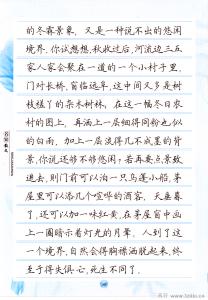 的冬霖景象，又是一种说不出的悠闲
境界，你试想想，秋收过后，河流边三五
家人家会聚在一道的一个小村子里，
门对长桥，窗临远阜，这中间又多是树
枝槎丫的杂木树林。在这一幅冬日农
村的图上，再洒上一层细得同粉也似
的白雨，加上一层淡得几不成墨的背
景，你说还够不够悠闲？若再要点景致
进去，则门前可以泊一只乌蓬小船，茅
屋里可以添几个喧哗的酒客，天垂暮
了，还可以加一味红黄，在茅屋窗中画
上一圈暗示着灯光的月晕。人到了这
一个境界，自然会得胸襟洒脱起来，终
至于得失俱亡，死生不同了。
名家散文